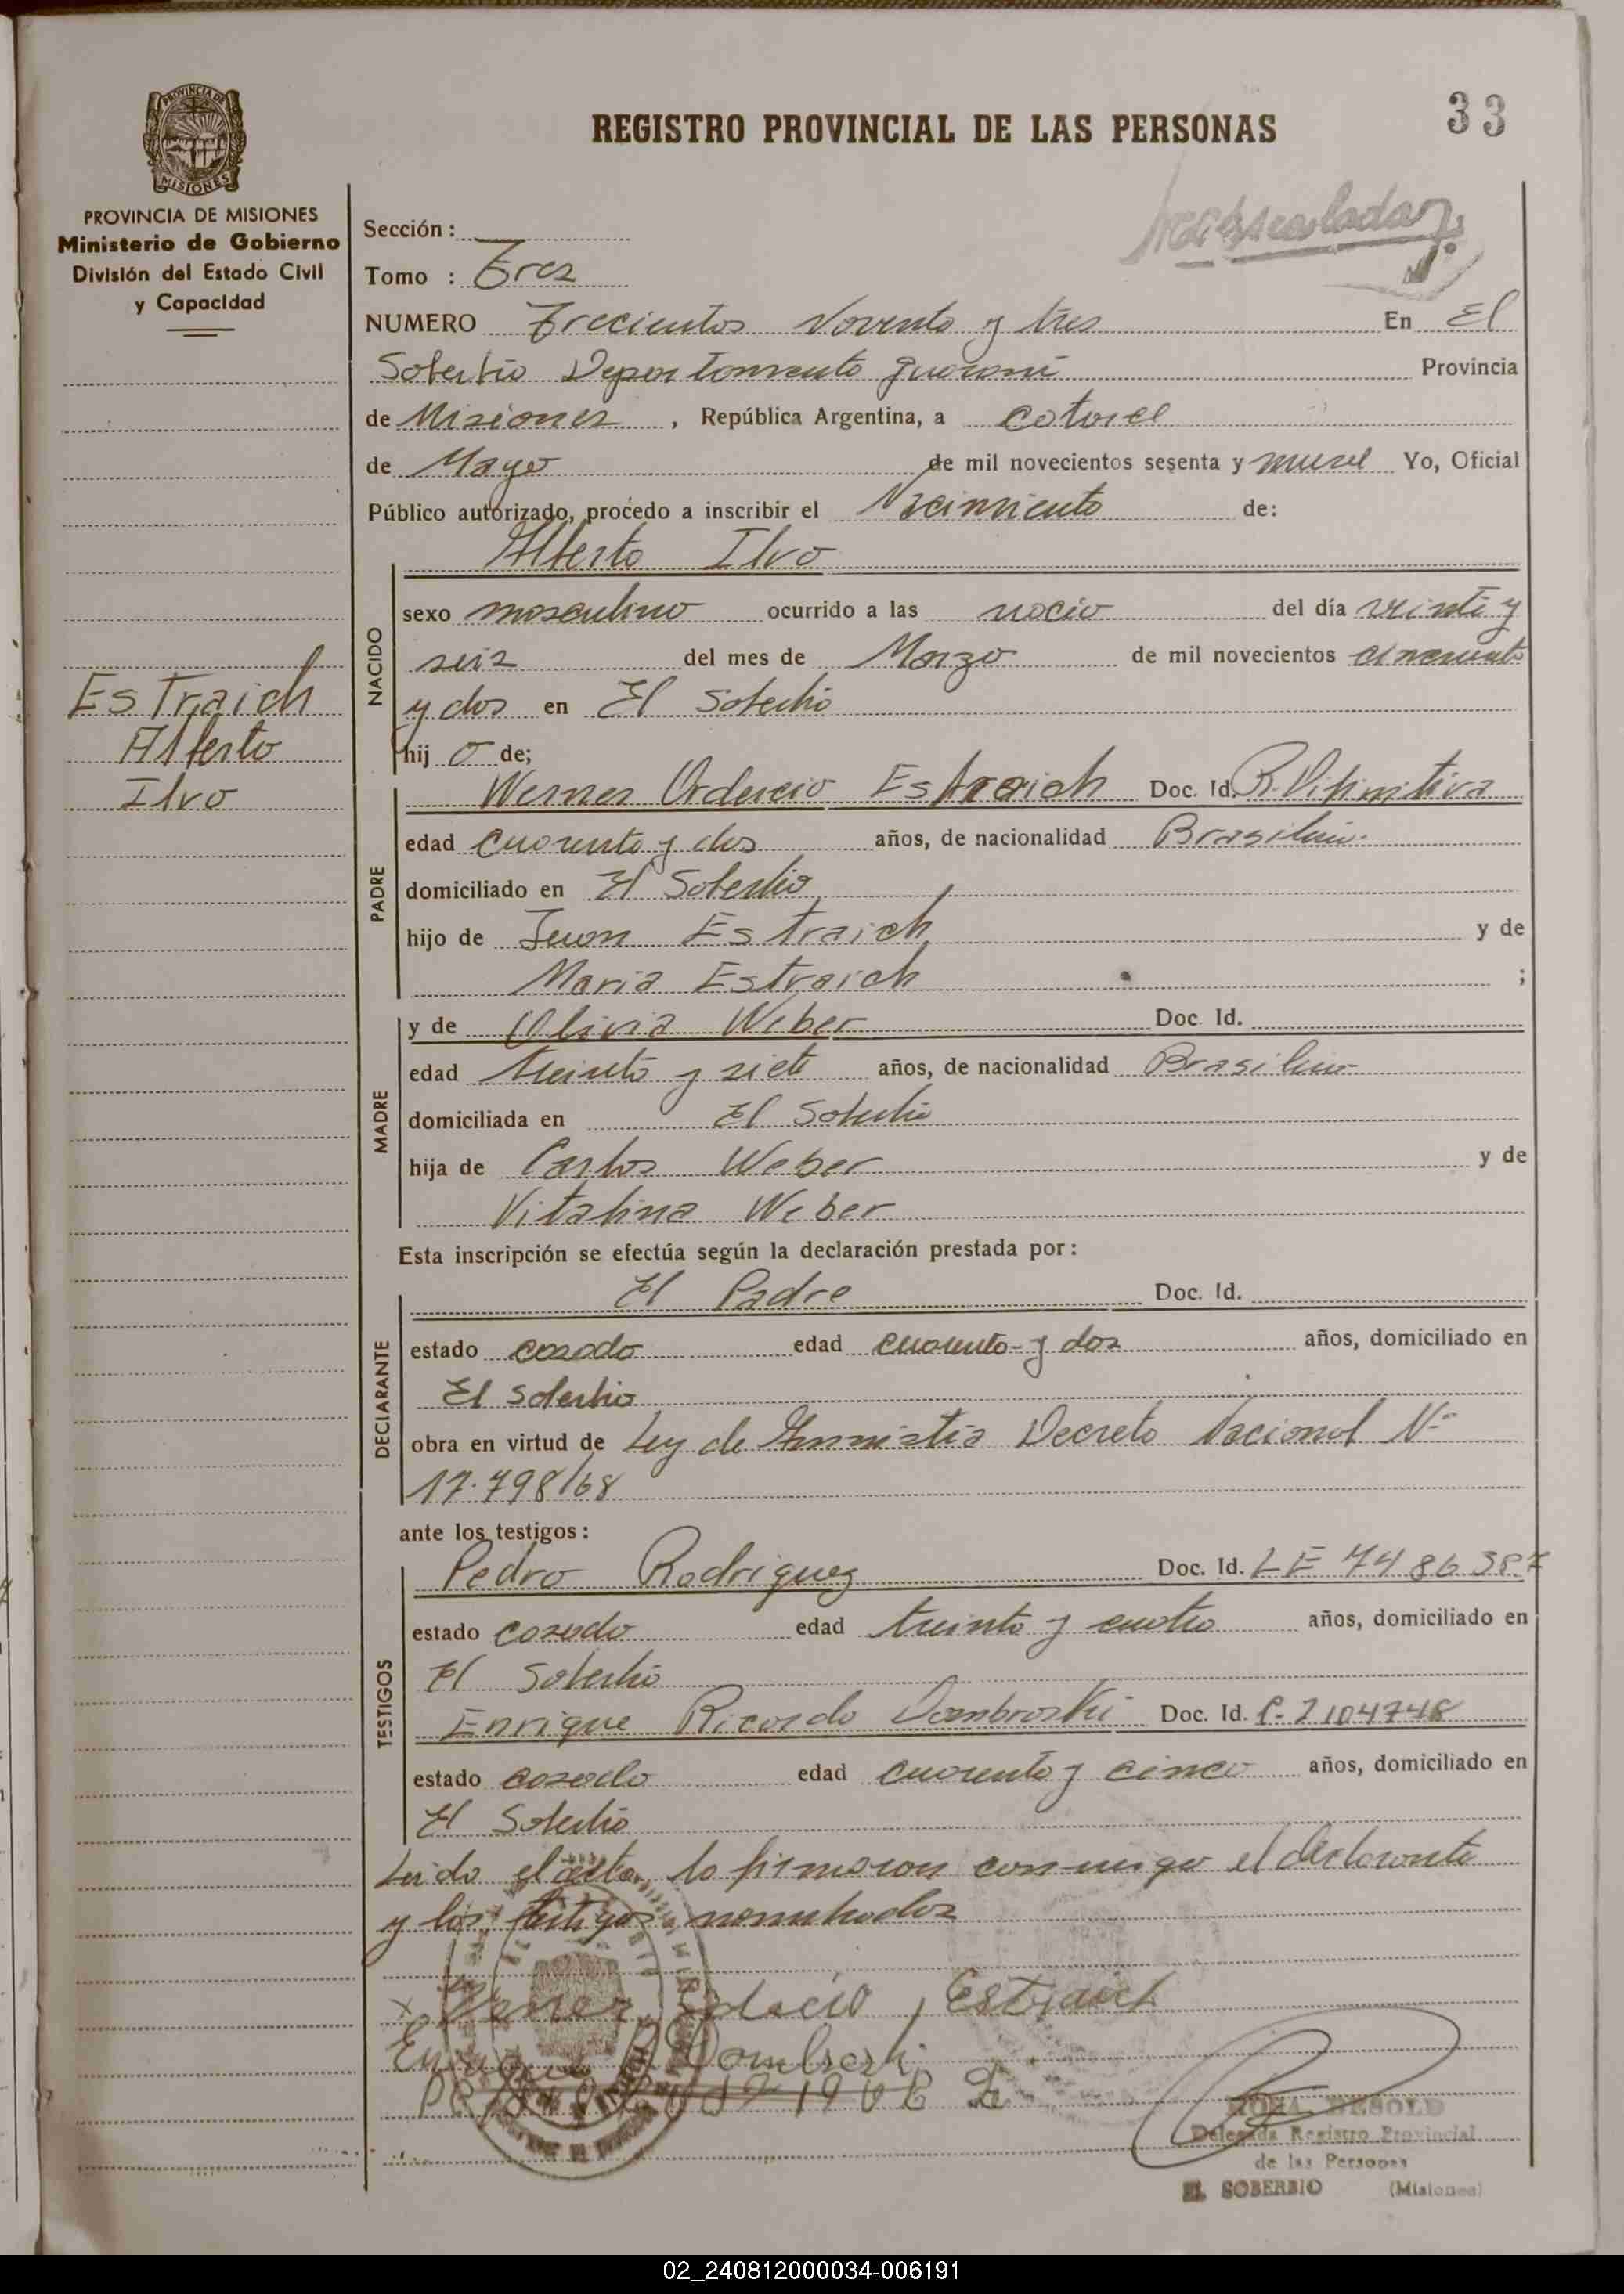 33
REGISTRO PROVINCIAL DE LAS PERSONAS
PROVINCIA DE MISIONES
MISIONES
PROVINCIA DE MISIONES
Ministerio de Gobierno
División del Estado Civil
y Capacidad
Sección :
Tomo : Tres
NUMERO Trecientos Noventa y tres En El
Soberbio Departamento Guarani Provincia
de Misiones , República Argentina, a catorce
de Mayo de mil novecientos sesenta y nueve Yo, Oficial
Público autorizado, procedo a inscribir el Nacimiento de:
Alberto Ilvo
NACIDO
sexo masculino ocurrido a las nació del día veinti y
seis del mes de Marzo de mil novecientos cincuenta
y dos en El Soberbio
hij o de;
Estraich
Alberto
Ilvo
PADRE
Werner Estraich Doc. Id. R. Difinitiva
edad cuarenta y dos años, de nacionalidad Brasilera
domiciliado en El Soberbio
hijo de Juan Estraich y de
Maria Estraich ;
MADRE
y de Olivia Weber Doc. Id.
edad treinta y siete años, de nacionalidad Brasilera
domiciliada en El Soberbio
hija de Carlos Weber y de
Vitalina Weber
Esta inscripción se efectúa según la declaración prestada por :
DECLARANTE
El Padre Doc. Id.
estado casado edad cuarenta y dos años, domiciliado en
El Soberbio
obra en virtud de Ley de Amnistia Decreto Nacional Nº
17.798/68
ante los testigos :
TESTIGOS
Pedro Rodriguez Doc. Id. LE 7486387
estado casado edad treinta y cuatro años, domiciliado en
El Soberbio
Enrique Ricardo Dombroski Doc. Id. C- 2104748
estado casado edad cuarenta y cinco años, domiciliado en
El Soberbio
Leido el acta, la firmaron con migo el declarante
y los testigos nombrados
x Estraich
Enrique Dombroski
ROSA BESOLD
Delegada Registro Provincial
de las Personas
EL SOBERBIO (Misiones)
02_240812000034-006191